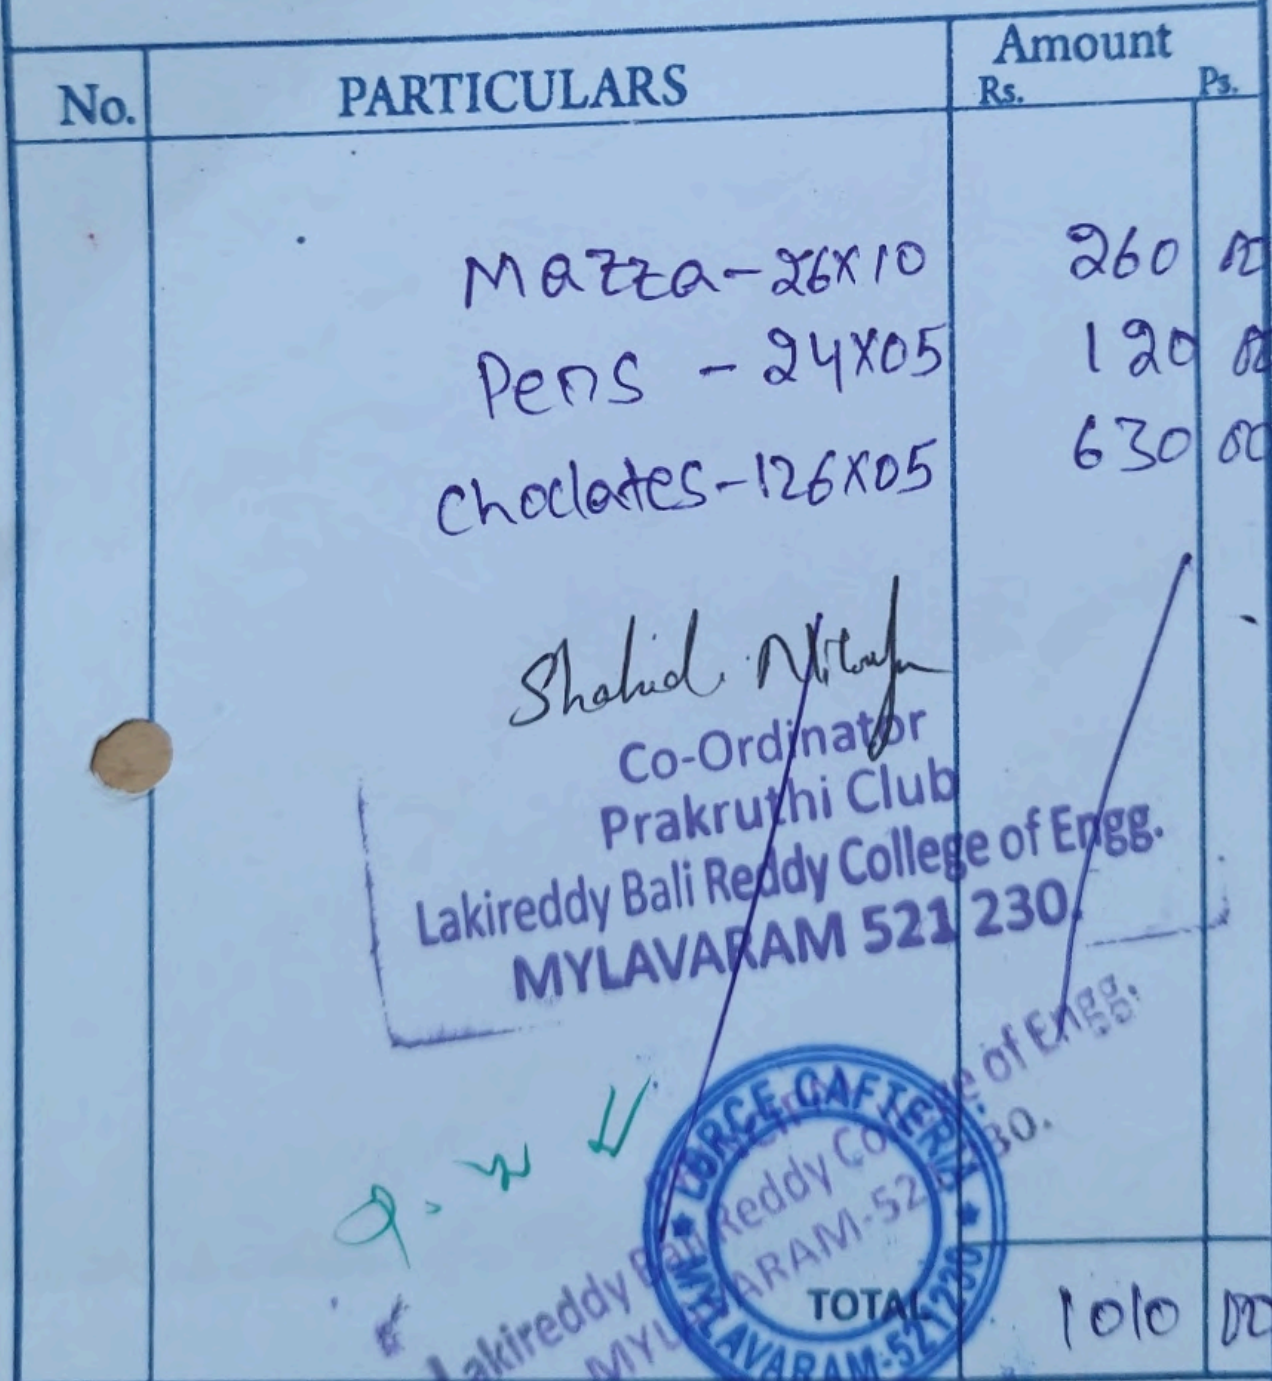 No. PARTICULARS Amount
Rs. Ps.
Mazza - 26X10 260 00
Pens - 24X05 120 00
Choclates - 126X05 630 00
Shahid.
Co-Ordinator
Prakruthi Club
Lakireddy Bali Reddy College of Engg.
MYLAVARAM 521 230.
LBRCE CAFTERIA
MYLAVARAM-521230
Lakireddy Bali Reddy College of Engg.
MYLAVARAM-521 230.
TOTAL 1010 00